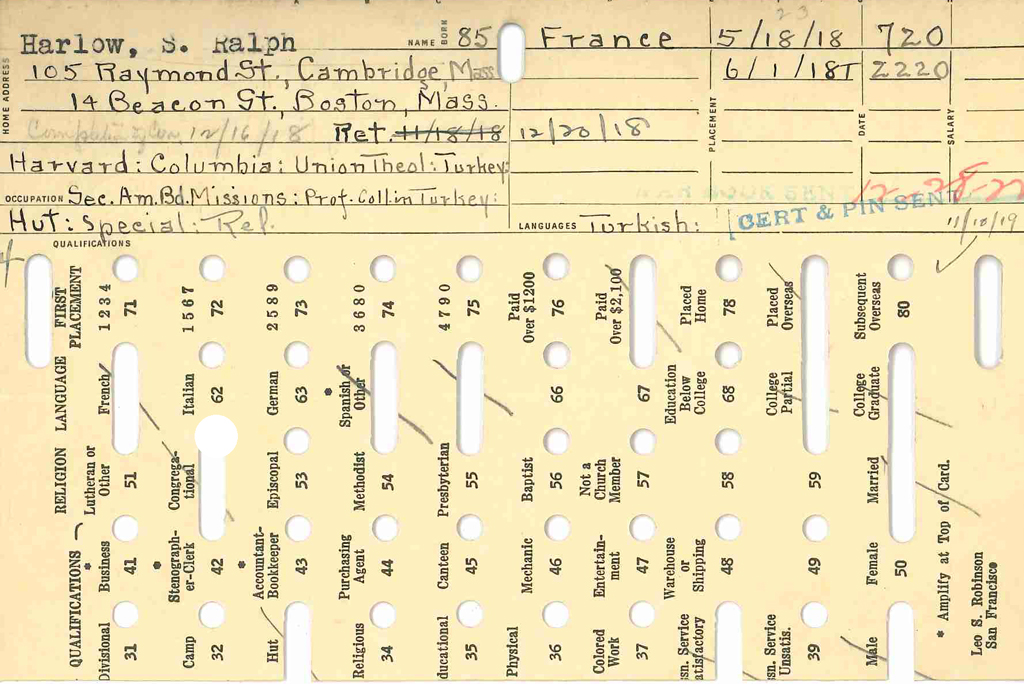 23
Harlow, S. Ralph NAME BORN 85 France 5/18/18 720
HOME ADDRESS 105 Raymond St., Cambridge, Mass 6/1/18T 2220
14 Beacon St., Boston, Mass.
12/16/18 Ret. 11/18/18 12/20/18 PLACEMENT DATE SALARY
Harvard: Columbia: Union Theol: Turkey:
OCCUPATION Sec. Am. Bd. Missions: Prof. Coll. in Turkey: 12-28-22
Hut: Special: Ref. LANGUAGES Turkish: CERT & PIN SENT 11/10/19
QUALIFICATIONS
FIRST PLACEMENT
1 2 3 4
71
1 5 6 7
72
2 5 8 9
73
3 6 8 0
74
4 7 9 0
75
Paid Over $1200
76
Paid Over $2,100
Placed Home
78
Placed Overseas
Subsequent Overseas
80
LANGUAGE
French
Italian
62
German
63
* Spanish or Other
66
67
Education Below College
68
College Partial
College Graduate
RELIGION
Lutheran or Other
51
Congregational
Episcopal
53
Methodist
54
Presbyterian
55
Baptist
56
Not a Church Member
57
58
59
Married
QUALIFICATIONS
* Business
41
* Stenographer-Clerk
42
* Accountant-Bookkeeper
43
Purchasing Agent
44
Canteen
45
Mechanic
46
Entertainment
47
Warehouse or Shipping
48
49
Female
50
Divisional
31
Camp
32
Hut
Religious
34
ducational
35
Physical
36
Colored Work
37
sn. Service atisfactory
sn. Service Unsatis.
39
Male
* Amplify at Top of Card.
Leo S. Robinson
San Francisco